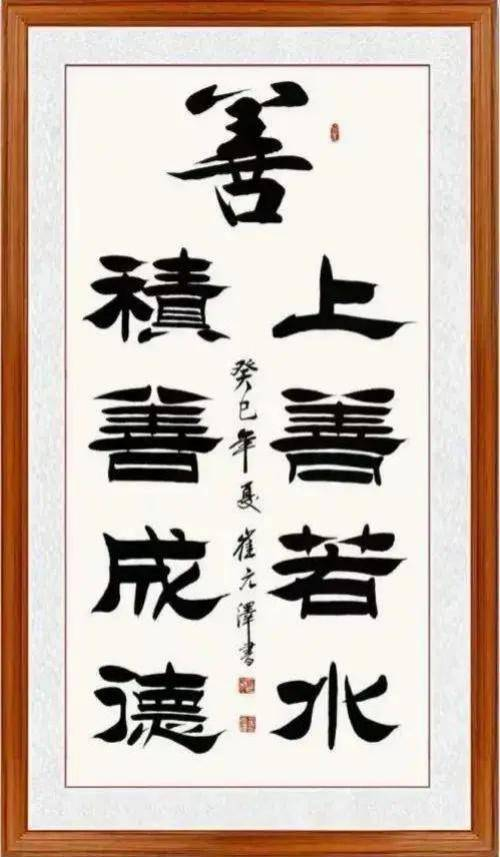 善
上善若水
积善成德
癸巳年夏 崔元泽书